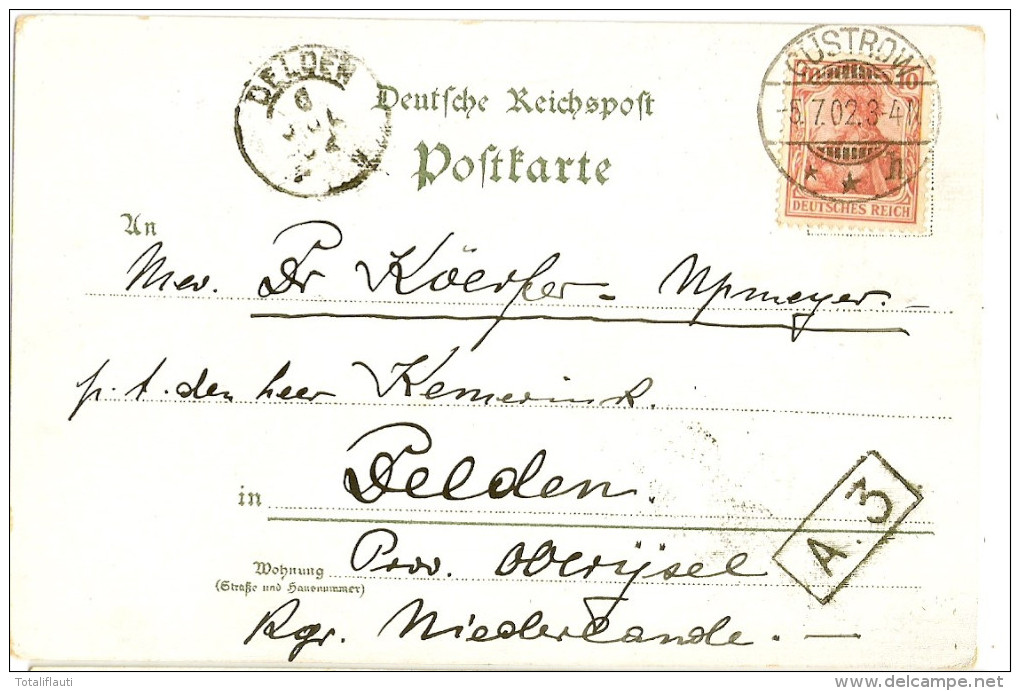 DELDEN
6
GÜSTROW
10
-5.7.02.3-4N.
* * h
DEUTSCHES REICH
Deutsche Reichspost
Postkarte
An
Mev. Dr Köerfer - Upmeyer. -
p. t. den heer Kemerink.
in Delden.
A. 3
Wohnung Prov. Oberijsel
(Straße und Hausnummer)
Kgr. Niederlande. -
Totaliflauti
www.delcampe.net